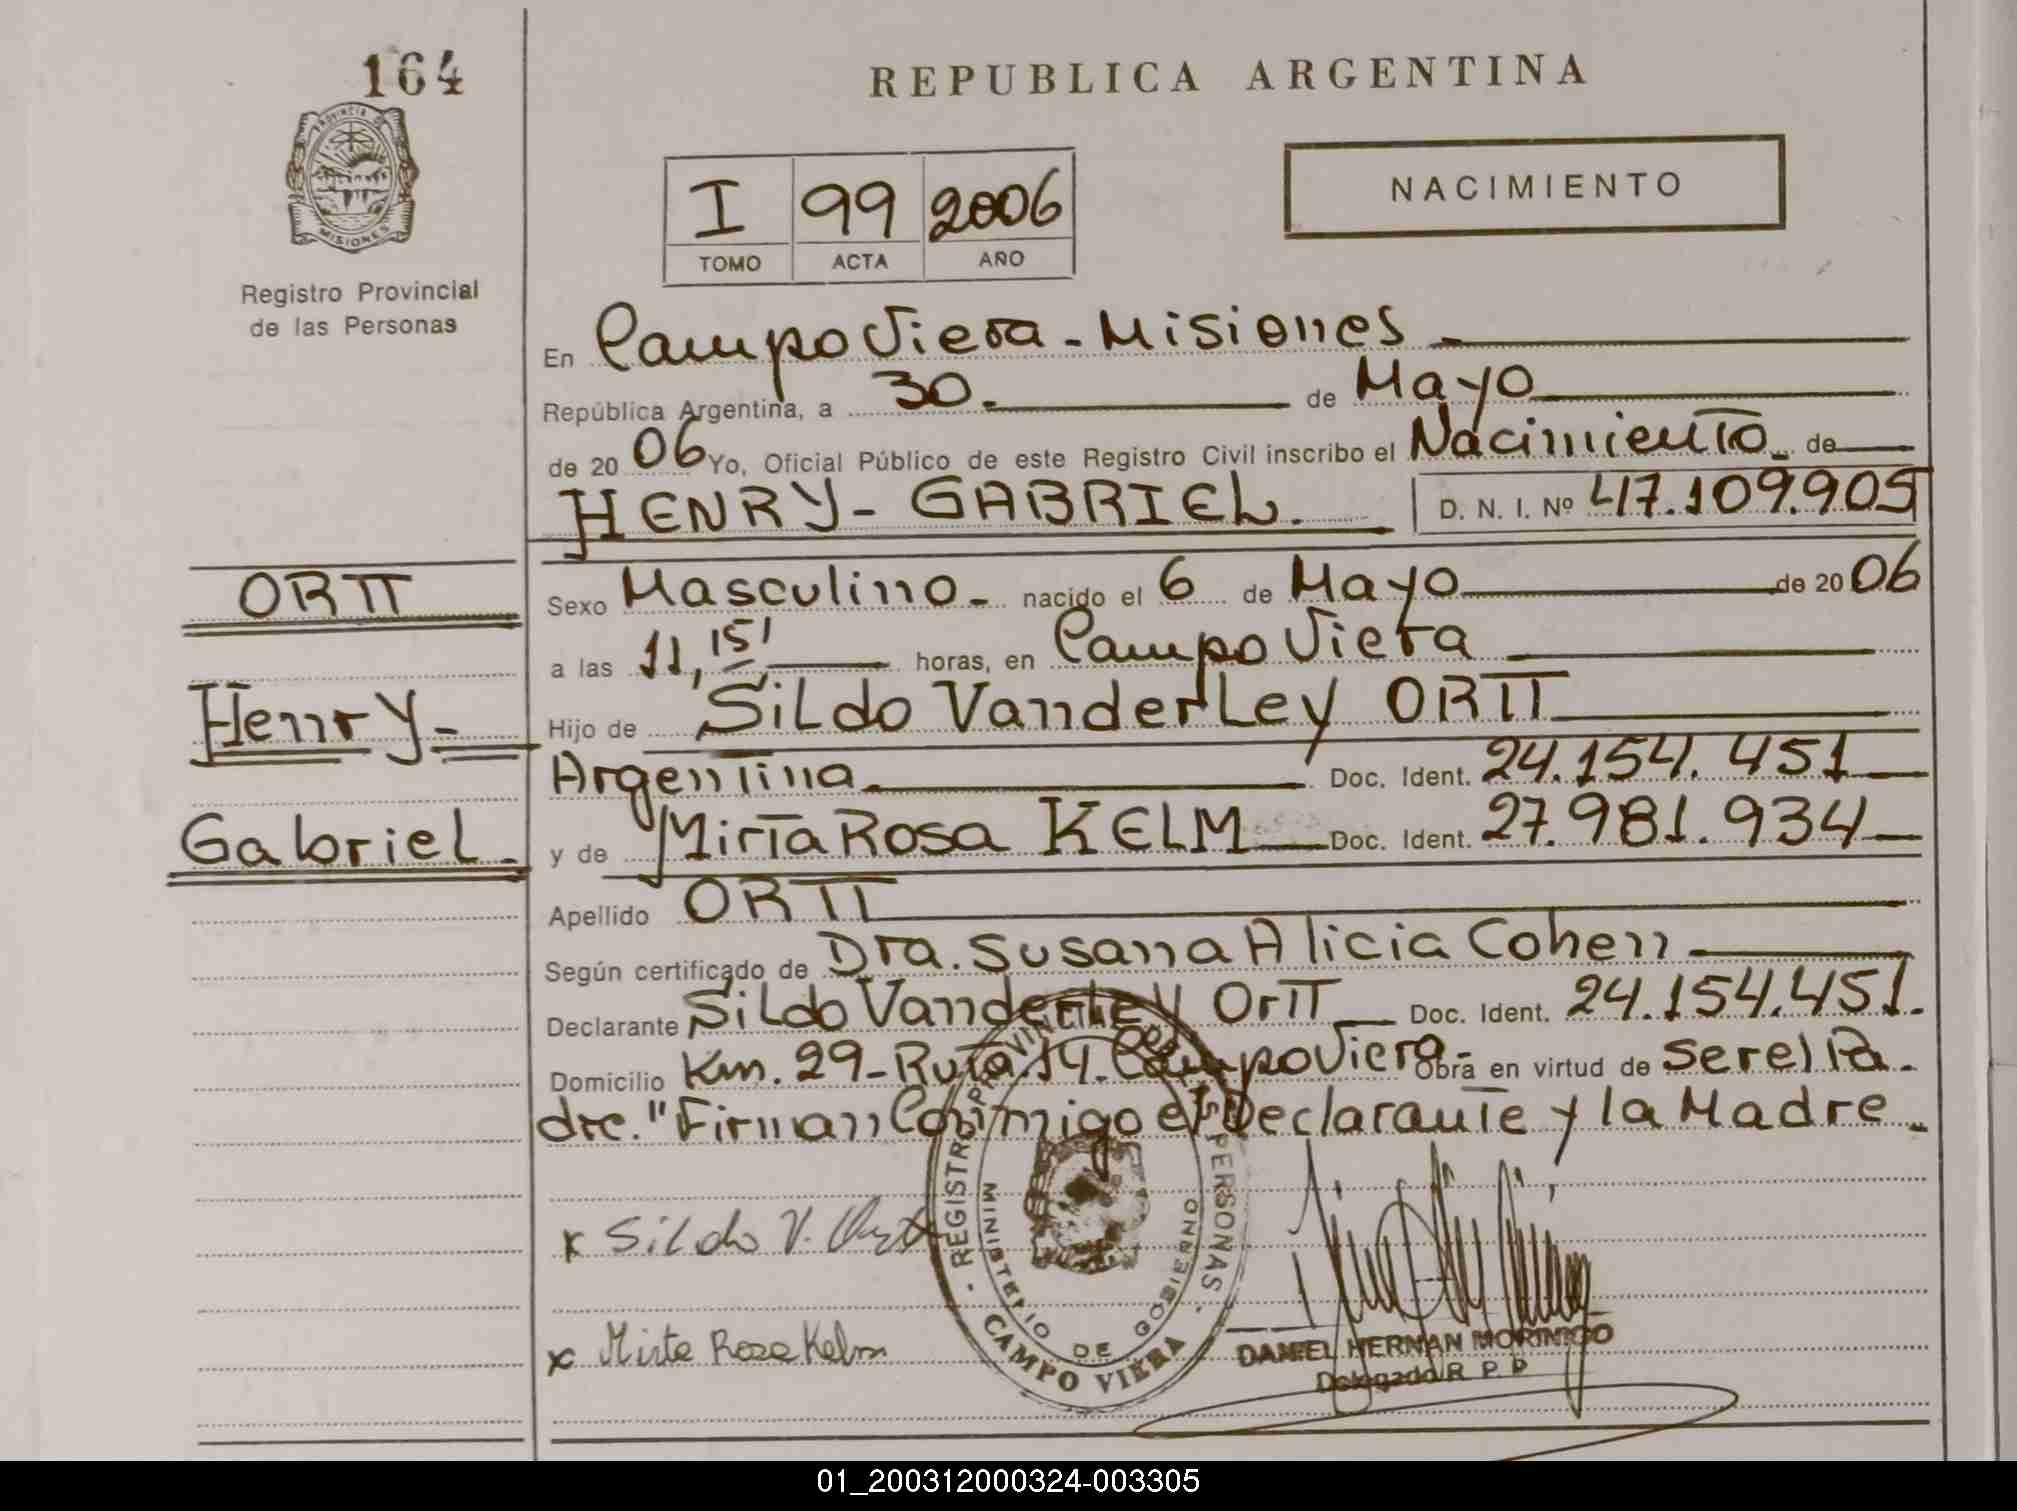 164
PROVINCIA DE
MISIONES
Registro Provincial
de las Personas
REPUBLICA ARGENTINA
I 99 2006
TOMO ACTA AÑO
NACIMIENTO
En Campo Viera - Misiones
República Argentina, a 30. de Mayo
de 20 06 Yo, Oficial Público de este Registro Civil inscribo el Nacimiento de
HENRY - GABRIEL. D. N. I. Nº 47.109.905
ORTT
Henry -
Gabriel -
Sexo Masculino - nacido el 6 de Mayo de 20 06
a las 11,15' horas, en Campo Viera
Hijo de Sildo Vanderley ORTT
Argentina Doc. Ident. 24.154.451
y de Mirta Rosa KELM Doc. Ident. 27.981.934
Apellido ORTT
Según certificado de Dra. Susana Alicia Cohen
Declarante Sildo Vanderley Ortt Doc. Ident. 24.154.451.
Domicilio Km. 29 - Ruta 14 - Campo Viera - Obra en virtud de ser el Pa-
dre. "Firman Conmigo el Declarante y la Madre -
x Sildo V. Ortt
x Mirta Rosa Kelm
REGISTRO PROVINCIAL DE LAS PERSONAS
MINISTERIO DE GOBIERNO
CAMPO VIERA
DANIEL HERNAN MORINIGO
Delegado R. P. P.
01_200312000324-003305